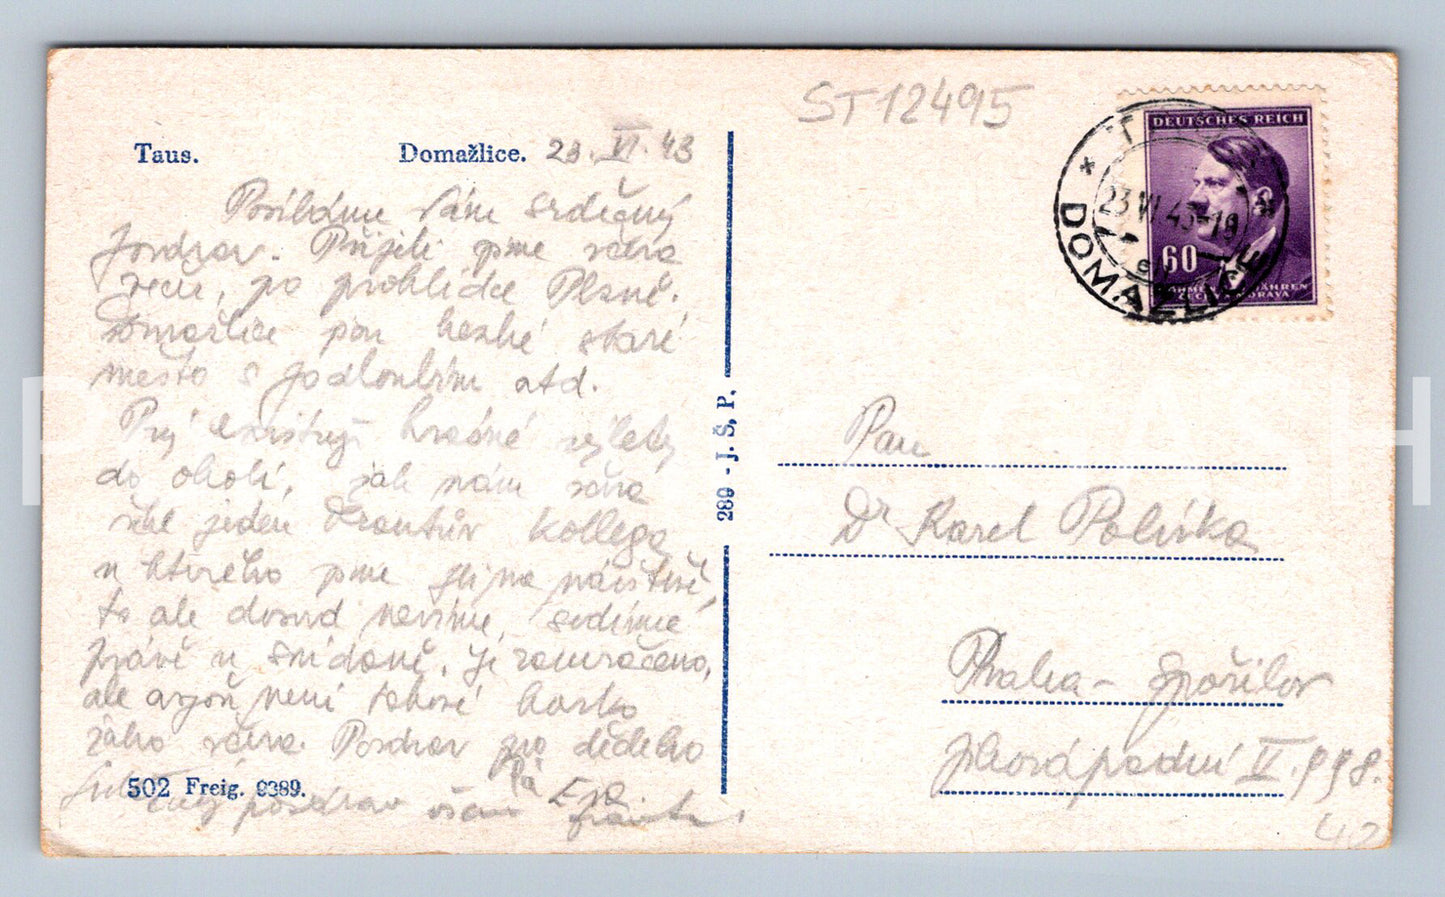 ST12495
Taus. Domažlice. 23. VI. 43
Posíláme Vám srdečný
pozdrav. Přijeli jsme včera
večer, po prohlídce Plzně.
Domažlice jsou hezké staré
město s podloubím atd.
Prý existují krásné výlety
do okolí, jak nám včera
řekl jeden kollega,
u kterého jsme na návštěvě,
to ale dosud nevíme, sedíme
právě u snídaně. Je zamračeno,
ale aspoň není takové horko
jako včera. Pozdrav pro dědečka
502 Freig. 9389.
pozdrav všem
289 - J. Š. P.
DEUTSCHES REICH
60
BÖHMEN UND MÄHREN
ČECHY A MORAVA
23 VI 43-18
DOMAŽLICE
Pan
Dr Karel Polívka
Praha - Spořilov
Jihozápadní V. 998.
42